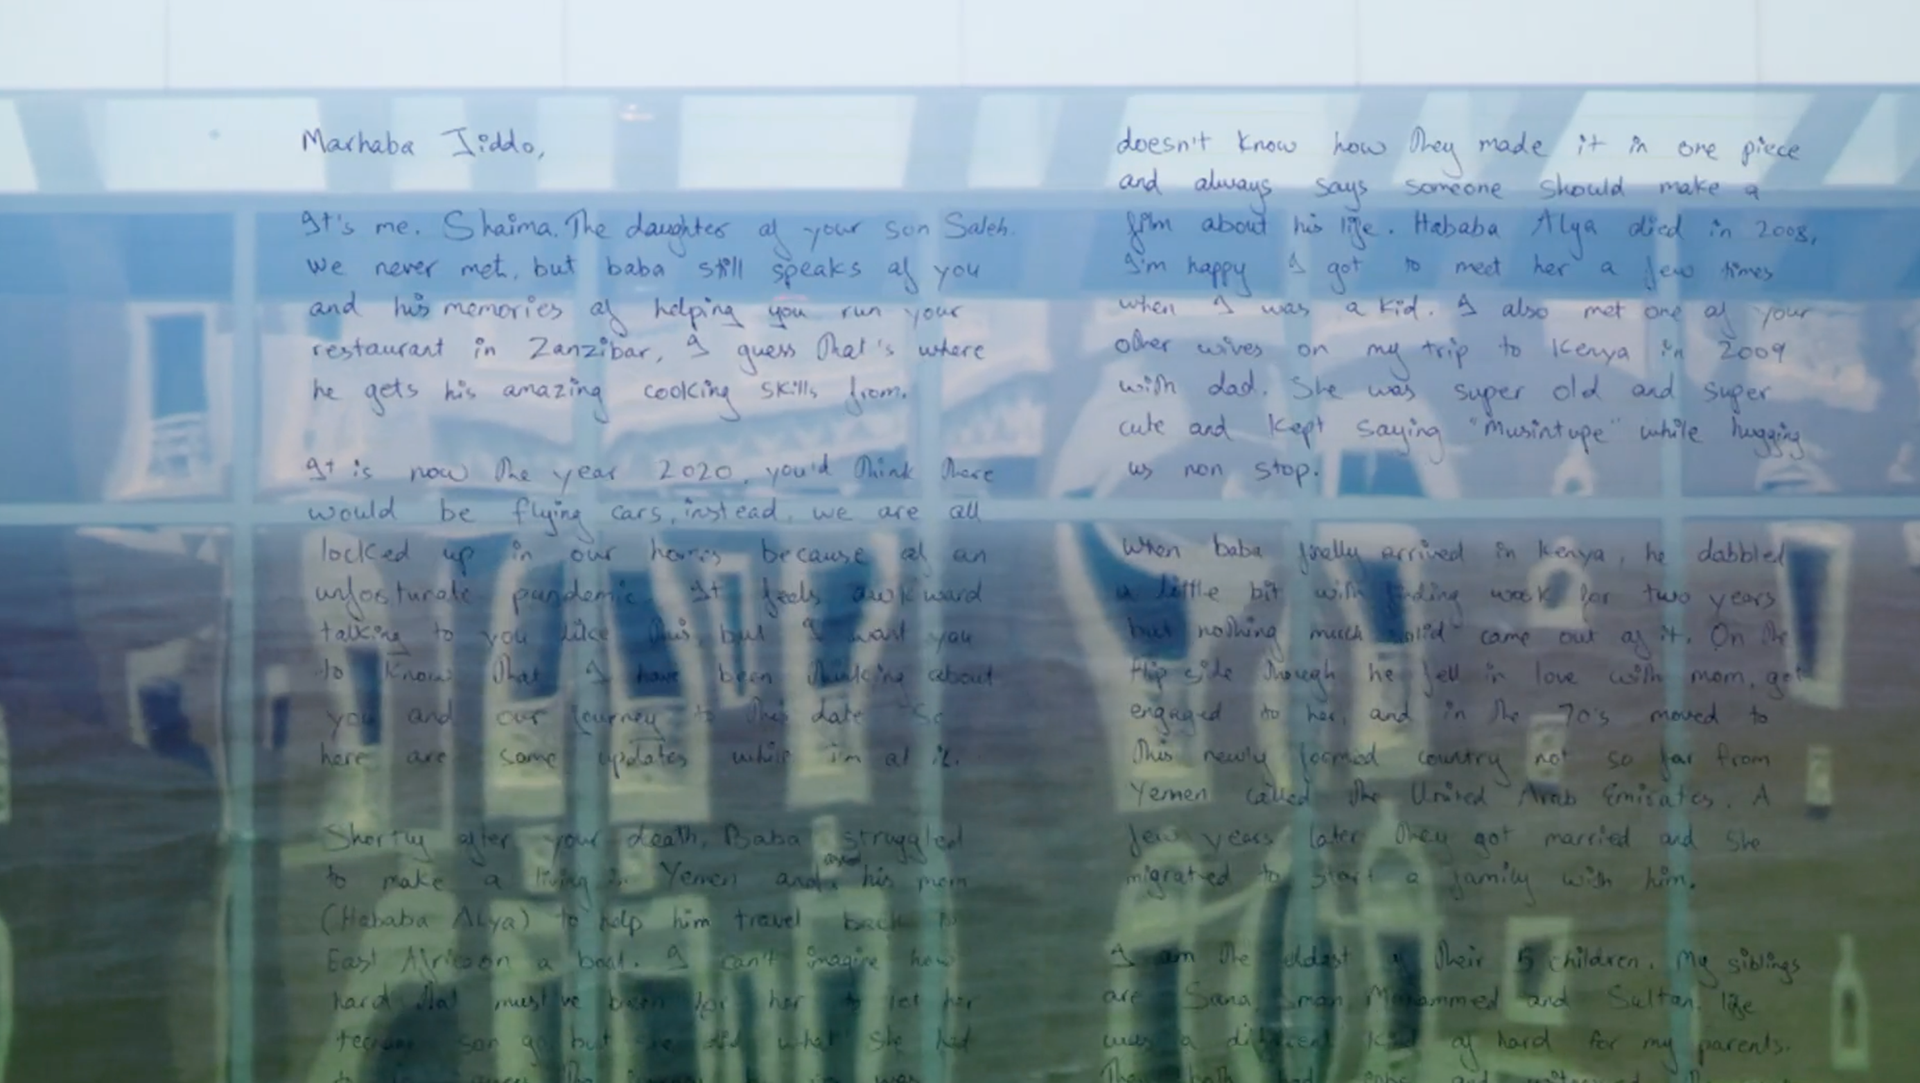 Marhaba Jiddo,
It's me. Shaima. The daughter of your son Saleh.
We never met, but baba still speaks of you
and his memories of helping you run your
restaurant in Zanzibar, I guess that's where
he gets his amazing cooking skills from.
It is now the year 2020, you'd think there
would be flying cars, instead, we are all
locked up in our homes because of an
unfortunate pandemic. It feels awkward
talking to you like this, but I want you
to know that I have been thinking about
you and our journey to this date. So
here are some updates while i'm at it.
Shortly after your death, Baba struggled
to make a living in Yemen and his mom
(Hababa Alya) to help him travel back to
East Africa on a boat. I can't imagine how
hard that must've been for her to let her
teenage son go but she did what she had
doesn't know how they made it in one piece
and always says someone should make a
film about his life. Hababa Alya died in 2008,
I'm happy I got to meet her a few times
when I was a kid. I also met one of your
other wives on my trip to Kenya in 2009
with dad. She was super old and super
cute and kept saying "Musintupe" while hugging
us non stop.
When baba finally arrived in Kenya, he dabbled
a little bit with finding work for two years
but nothing much solid came out of it. On the
flip side though he fell in love with mom, got
engaged to her, and in the 70's moved to
this newly formed country not so far from
Yemen called the United Arab Emirates. A
few years later they got married and she
migrated to start a family with him.
I am the eldest of their 5 children. My siblings
are Sana, Iman, Mohammed and Sultan. life
was a different kind of hard for my parents.